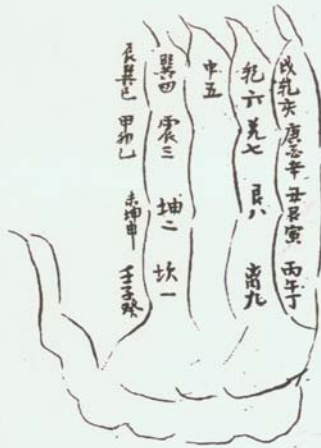 戌乾亥 庚酉辛 丑艮寅 丙午丁
乾六 兑七 艮八 离九
中五
巽四 震三 坤二 坎一
辰巽巳 甲卯乙 未坤申 壬子癸